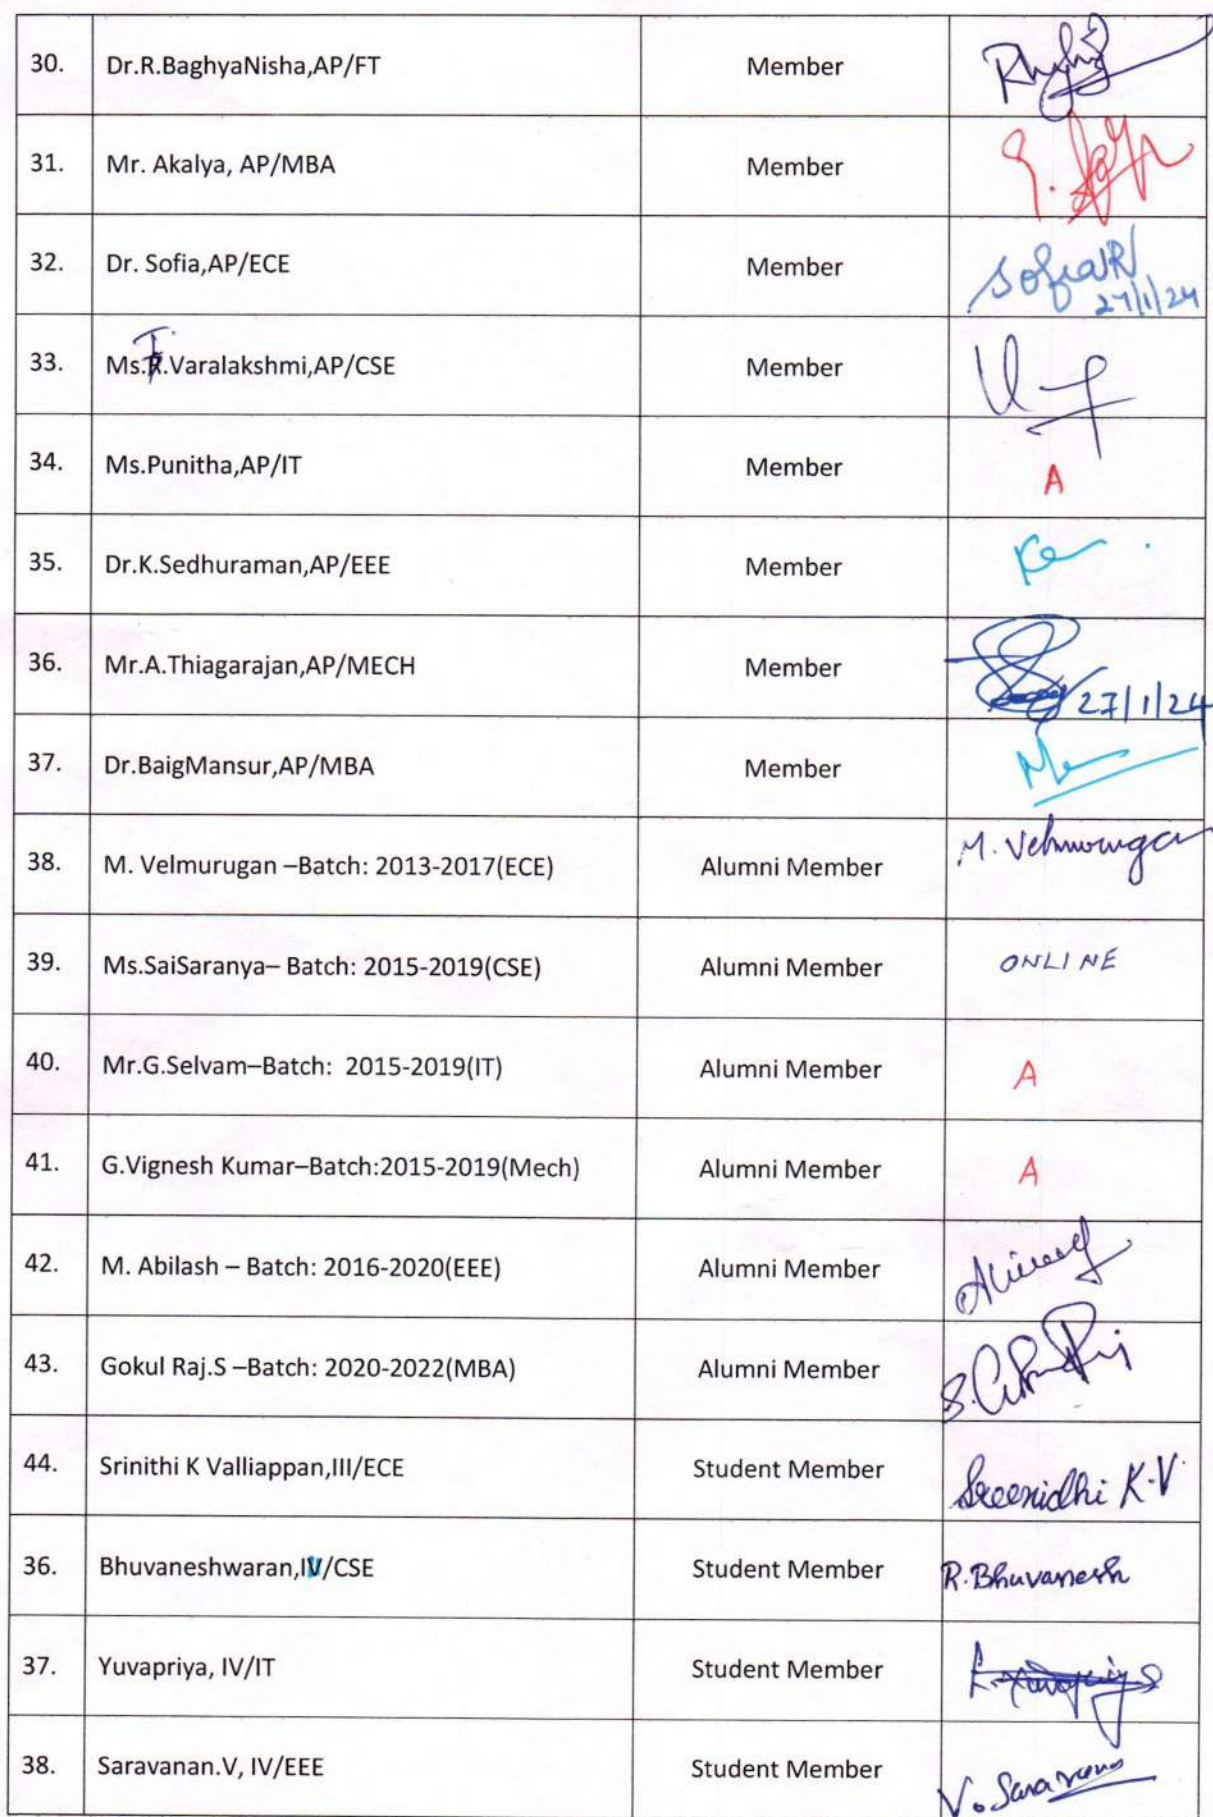 30. Dr.R.BaghyaNisha,AP/FT Member
31. Mr. Akalya, AP/MBA Member
32. Dr. Sofia,AP/ECE Member SofiaR
27/1/24
33. Ms.T.Varalakshmi,AP/CSE Member
34. Ms.Punitha,AP/IT Member A
35. Dr.K.Sedhuraman,AP/EEE Member
36. Mr.A.Thiagarajan,AP/MECH Member 27/1/24
37. Dr.BaigMansur,AP/MBA Member
38. M. Velmurugan –Batch: 2013-2017(ECE) Alumni Member M. Velmurugan
39. Ms.SaiSaranya– Batch: 2015-2019(CSE) Alumni Member ONLINE
40. Mr.G.Selvam–Batch: 2015-2019(IT) Alumni Member A
41. G.Vignesh Kumar–Batch:2015-2019(Mech) Alumni Member A
42. M. Abilash – Batch: 2016-2020(EEE) Alumni Member
43. Gokul Raj.S –Batch: 2020-2022(MBA) Alumni Member
44. Srinithi K Valliappan,III/ECE Student Member Sreenidhi K.V
36. Bhuvaneshwaran,IV/CSE Student Member R.Bhuvanesh
37. Yuvapriya, IV/IT Student Member
38. Saravanan.V, IV/EEE Student Member